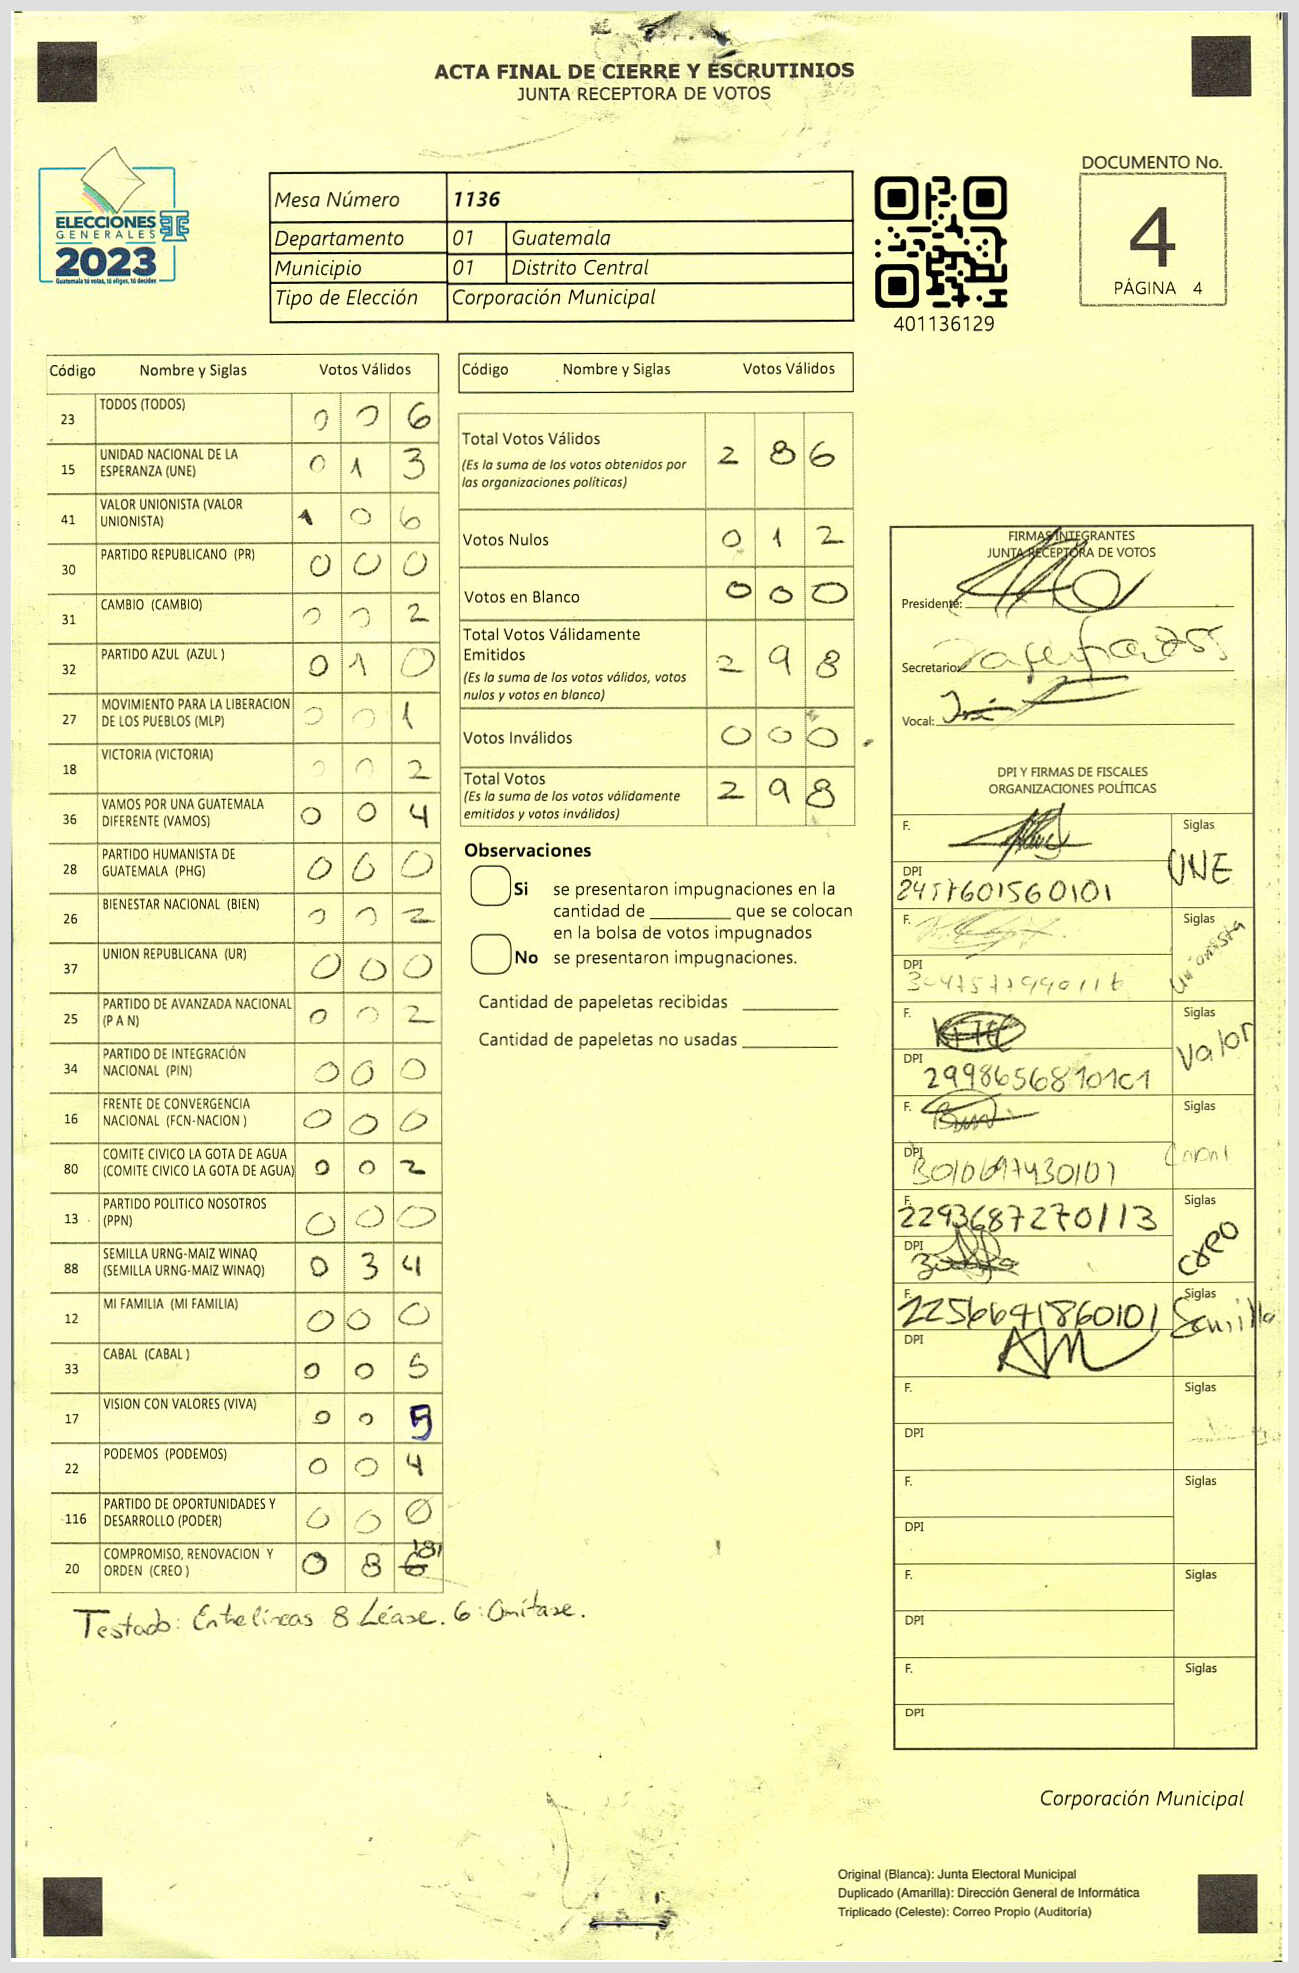 ACTA FINAL DE CIERRE Y ESCRUTINIOS
JUNTA RECEPTORA DE VOTOS
ELECCIONES
GENERALES
2023
Guatemala tú votas, tú eliges, tú decides
Mesa Número 1136
Departamento 01 Guatemala
Municipio 01 Distrito Central
Tipo de Elección Corporación Municipal
401136129
DOCUMENTO No.
4
PÁGINA 4
Código Nombre y Siglas Votos Válidos
23 TODOS (TODOS) 0 0 6
15 UNIDAD NACIONAL DE LA ESPERANZA (UNE) 0 1 3
41 VALOR UNIONISTA (VALOR UNIONISTA) 1 0 6
30 PARTIDO REPUBLICANO (PR) 0 0 0
31 CAMBIO (CAMBIO) 0 0 2
32 PARTIDO AZUL (AZUL ) 0 1 0
27 MOVIMIENTO PARA LA LIBERACION DE LOS PUEBLOS (MLP) 0 0 1
18 VICTORIA (VICTORIA) 0 0 2
36 VAMOS POR UNA GUATEMALA DIFERENTE (VAMOS) 0 0 4
28 PARTIDO HUMANISTA DE GUATEMALA (PHG) 0 0 0
26 BIENESTAR NACIONAL (BIEN) 0 0 2
37 UNION REPUBLICANA (UR) 0 0 0
25 PARTIDO DE AVANZADA NACIONAL (P A N) 0 0 2
34 PARTIDO DE INTEGRACIÓN NACIONAL (PIN) 0 0 0
16 FRENTE DE CONVERGENCIA NACIONAL (FCN-NACION ) 0 0 0
80 COMITE CIVICO LA GOTA DE AGUA (COMITE CIVICO LA GOTA DE AGUA) 0 0 2
13 PARTIDO POLITICO NOSOTROS (PPN) 0 0 0
88 SEMILLA URNG-MAIZ WINAQ (SEMILLA URNG-MAIZ WINAQ) 0 3 4
12 MI FAMILIA (MI FAMILIA) 0 0 0
33 CABAL (CABAL ) 0 0 5
17 VISION CON VALORES (VIVA) 0 0 5
22 PODEMOS (PODEMOS) 0 0 4
116 PARTIDO DE OPORTUNIDADES Y DESARROLLO (PODER) 0 0 0
20 COMPROMISO, RENOVACION Y ORDEN (CREO ) 0 8 6 8
Testado: Entrelíneas 8 Léase. 6: Omítase.
Código Nombre y Siglas Votos Válidos
Total Votos Válidos 2 8 6
(Es la suma de los votos obtenidos por
las organizaciones políticas)
Votos Nulos 0 1 2
Votos en Blanco 0 0 0
Total Votos Válidamente
Emitidos 2 9 8
(Es la suma de los votos válidos, votos
nulos y votos en blanco)
Votos Inválidos 0 0 0
Total Votos 2 9 8
(Es la suma de los votos válidamente
emitidos y votos inválidos)
Observaciones
Si se presentaron impugnaciones en la
cantidad de ________ que se colocan
en la bolsa de votos impugnados
No se presentaron impugnaciones.
Cantidad de papeletas recibidas
Cantidad de papeletas no usadas
FIRMAS INTEGRANTES
JUNTA RECEPTORA DE VOTOS
Presidente:
Secretario:
Vocal: José
DPI Y FIRMAS DE FISCALES
ORGANIZACIONES POLÍTICAS
F. Siglas
DPI UNE
2457601560101
F. Siglas
DPI Unionista
F. Siglas
DPI Valor
2998656810101
F. Siglas
DPI
3010697430101
F. Siglas
2293687270113
DPI Creo
F. Siglas
2256641860101 Semilla
DPI
F. Siglas
DPI
F. Siglas
DPI
F. Siglas
DPI
F. Siglas
DPI
Corporación Municipal
Original (Blanca): Junta Electoral Municipal
Duplicado (Amarilla): Dirección General de Informática
Triplicado (Celeste): Correo Propio (Auditoría)